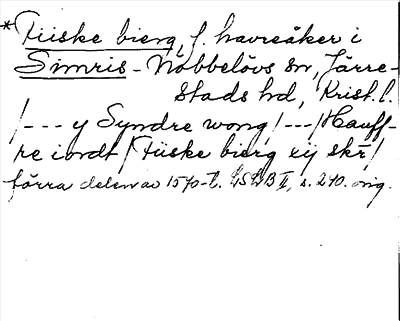 *Tiiske bierg, f. havreåker i
Simris-Nöbbelövs sn, Järre-
stads hd, Krist. l.
/--- y Syndre wong/---/Hauff-
re iordt/Tiiske bierg xij skr̄/
förra delen av 1570-t. LSGB II, s. 240. orig.